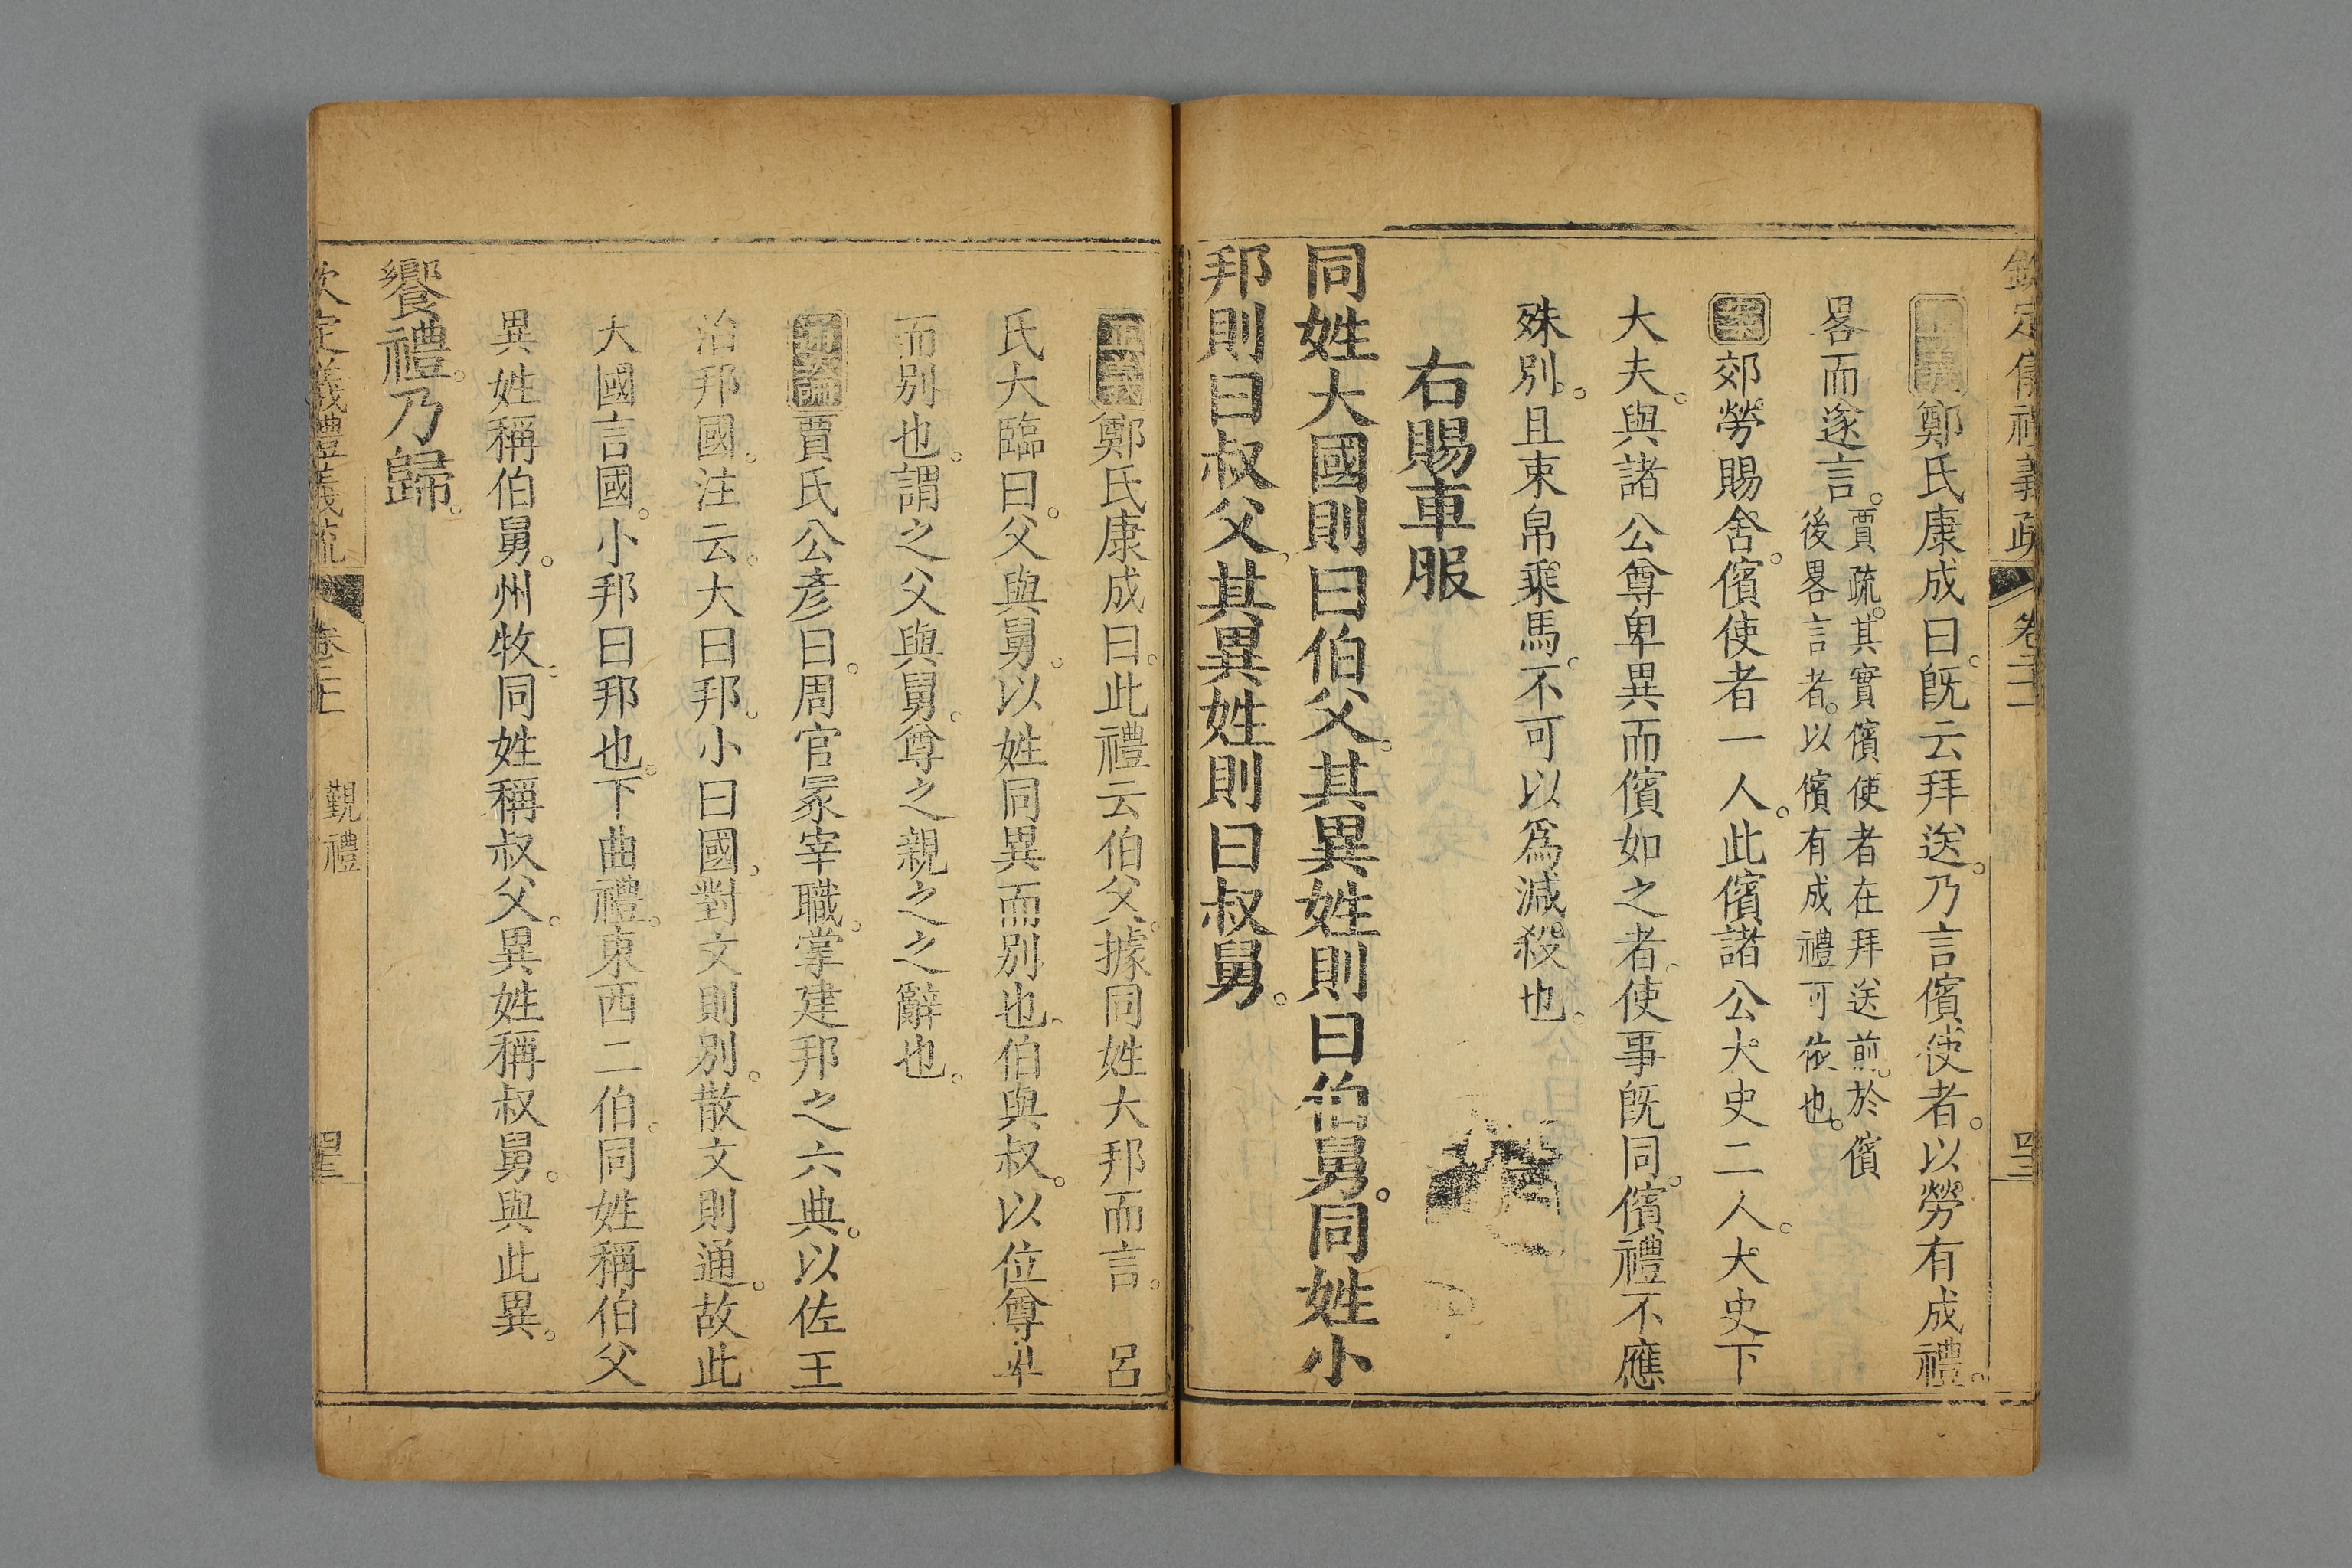 欽定儀禮義疏 卷二十
正義鄭氏康成曰。旣云拜送。乃言儐使者。以勞有成禮。
畧而遂言。賈疏。其實儐使者在拜送前。於儐
後畧言者。以儐有成禮可依也。
案郊勞。賜舍。儐使者一人。此儐諸公大史二人。大史下
大夫。與諸公尊卑異而儐如之者。使事旣同。儐禮不應
殊別。且束帛乘馬。不可以爲減殺也。
右賜車服
同姓大國則曰伯父。其異姓則曰伯舅。同姓小
邦則曰叔父。其異姓則曰叔舅。
正義鄭氏康成曰。此禮云伯父。據同姓大邦而言。 呂
氏大臨曰。父與舅。以姓同異而別也。伯與叔。以位尊卑
而別也。謂之父與舅。尊之親之之辭也。
通論賈氏公彥曰。周官冢宰職。掌建邦之六典。以佐王
治邦國。注云。大曰邦。小曰國。對文則別。散文則通。故此
大國言國。小邦曰邦也。下曲禮。東西二伯。同姓稱伯父
異姓稱伯舅。州牧。同姓稱叔父。異姓稱叔舅。與此異。
饗禮。乃歸。
欽定儀禮義疏 覲禮